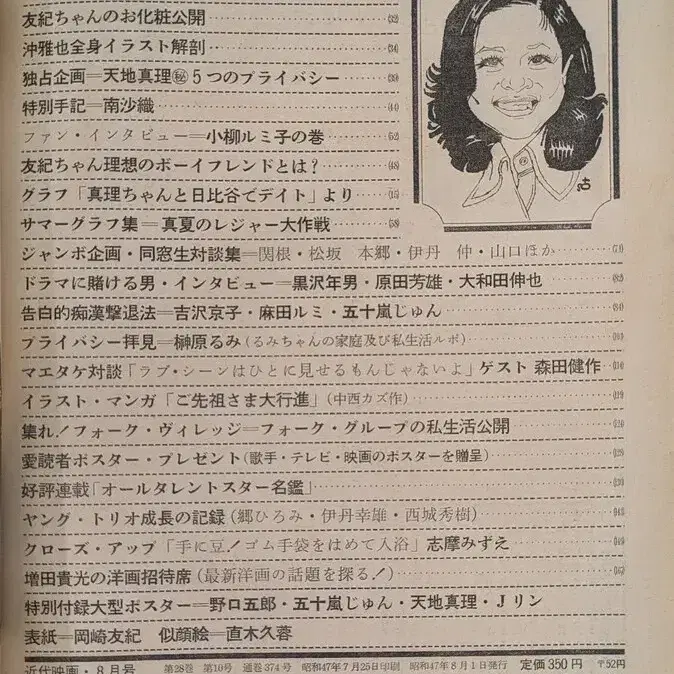 友紀ちゃんのお化粧公開……(32)
沖雅也全身イラスト解剖……(34)
独占企画＝天地真理㊙5つのプライバシー……
特別手記＝南沙織……(44)
ファン・インタビュー＝小柳ルミ子の巻……(52)
友紀ちゃん理想のボーイフレンドとは？……(48)
グラフ「真理ちゃんと日比谷でデイト」より……(15)
サマーグラフ集＝真夏のレジャー大作戦……(58)
ジャンボ企画・同窓生対談集＝関根・松坂　本郷・伊丹　仲・山口ほか……
ドラマに賭ける男・インタビュー＝黒沢年男・原田芳雄・大和田伸也……
告白的痴漢撃退法＝吉沢京子・麻田ルミ・五十嵐じゅん……
プライバシー拝見＝榊原るみ(るみちゃんの家庭及び私生活ルポ)……
マエタケ対談「ラブ・シーンはひとに見せるもんじゃないよ」ゲスト 森田健作
イラスト・マンガ「ご先祖さま大行進」(中西カズ作)……
集れ！フォーク・ヴィレッジ＝フォーク・グループの私生活公開……
愛読者ポスター・プレゼント(歌手・テレビ・映画のポスターを贈呈)……
好評連載「オールタレントスター名鑑」……
ヤング・トリオ成長の記録(郷ひろみ・伊丹幸雄・西城秀樹)……
クローズ・アップ「手に豆！ゴム手袋をはめて入浴」志摩みずえ……
増田貴光の洋画招待席(最新洋画の話題を探る！)……
特別付録大型ポスター＝野口五郎・五十嵐じゅん・天地真理・Jリン
表紙＝岡崎友紀　似顔絵＝直木久蓉
近代映画・8月号　第28巻　第10号　通巻374号　昭和47年7月25日印刷　昭和47年8月1日発行　定価350円　〒52円